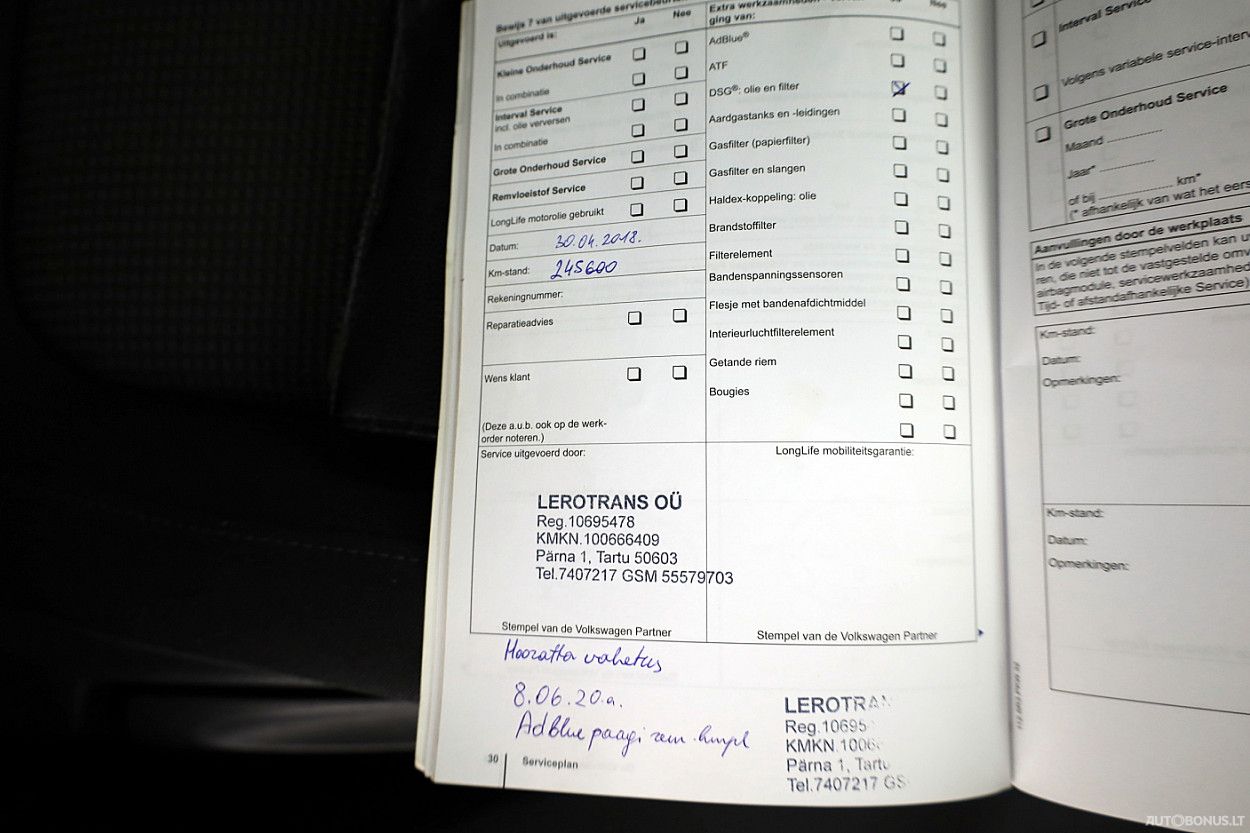 Bewijs 7 van uitgevoerde
Uitgevoerd is:
Ja
Nee
Kleine Onderhoud Service
In combinatie
Interval Service
incl. olie verversen
In combinatie
Grote Onderhoud Service
Remvloeistof Service
LongLife motorolie gebruikt
Datum: 30.04.2018.
Km-stand: 245600
Rekeningnummer:
Reparatieadvies
Wens klant
(Deze a.u.b. ook op de werk-
order noteren.)
Extra werkzaamheden
ging van:
Nee
AdBlue®
ATF
DSG®: olie en filter
Aardgastanks en -leidingen
Gasfilter (papierfilter)
Gasfilter en slangen
Haldex-koppeling: olie
Brandstoffilter
Filterelement
Bandenspanningssensoren
Flesje met bandenafdichtmiddel
Interieurluchtfilterelement
Getande riem
Bougies
Service uitgevoerd door:
LEROTRANS OÜ
Reg.10695478
KMKN.100666409
Pärna 1, Tartu 50603
Tel.7407217 GSM 55579703
Stempel van de Volkswagen Partner
LongLife mobiliteitsgarantie:
Stempel van de Volkswagen Partner
Hooratta vahetus
8.06.20.a.
AdBlue paagi rem.
LEROTRAN
Reg.10695
KMKN.1006
Pärna 1, Tartu
Tel.7407217 GS
30 Serviceplan
Interval Service
Volgens variabele service-interv
Grote Onderhoud Service
Maand
Jaar*
of bij km*
(* afhankelijk van wat het eers
Aanvullingen door de werkplaats
In de volgende stempelvelden kan u
ren, die niet tot de vastgestelde omv
airbagmodule, servicewerkzaamhed
Tijd- of afstandafhankelijke Service)
Km-stand:
Datum:
Opmerkingen:
Km-stand:
Datum:
Opmerkingen:
AUTOBONUS.LT